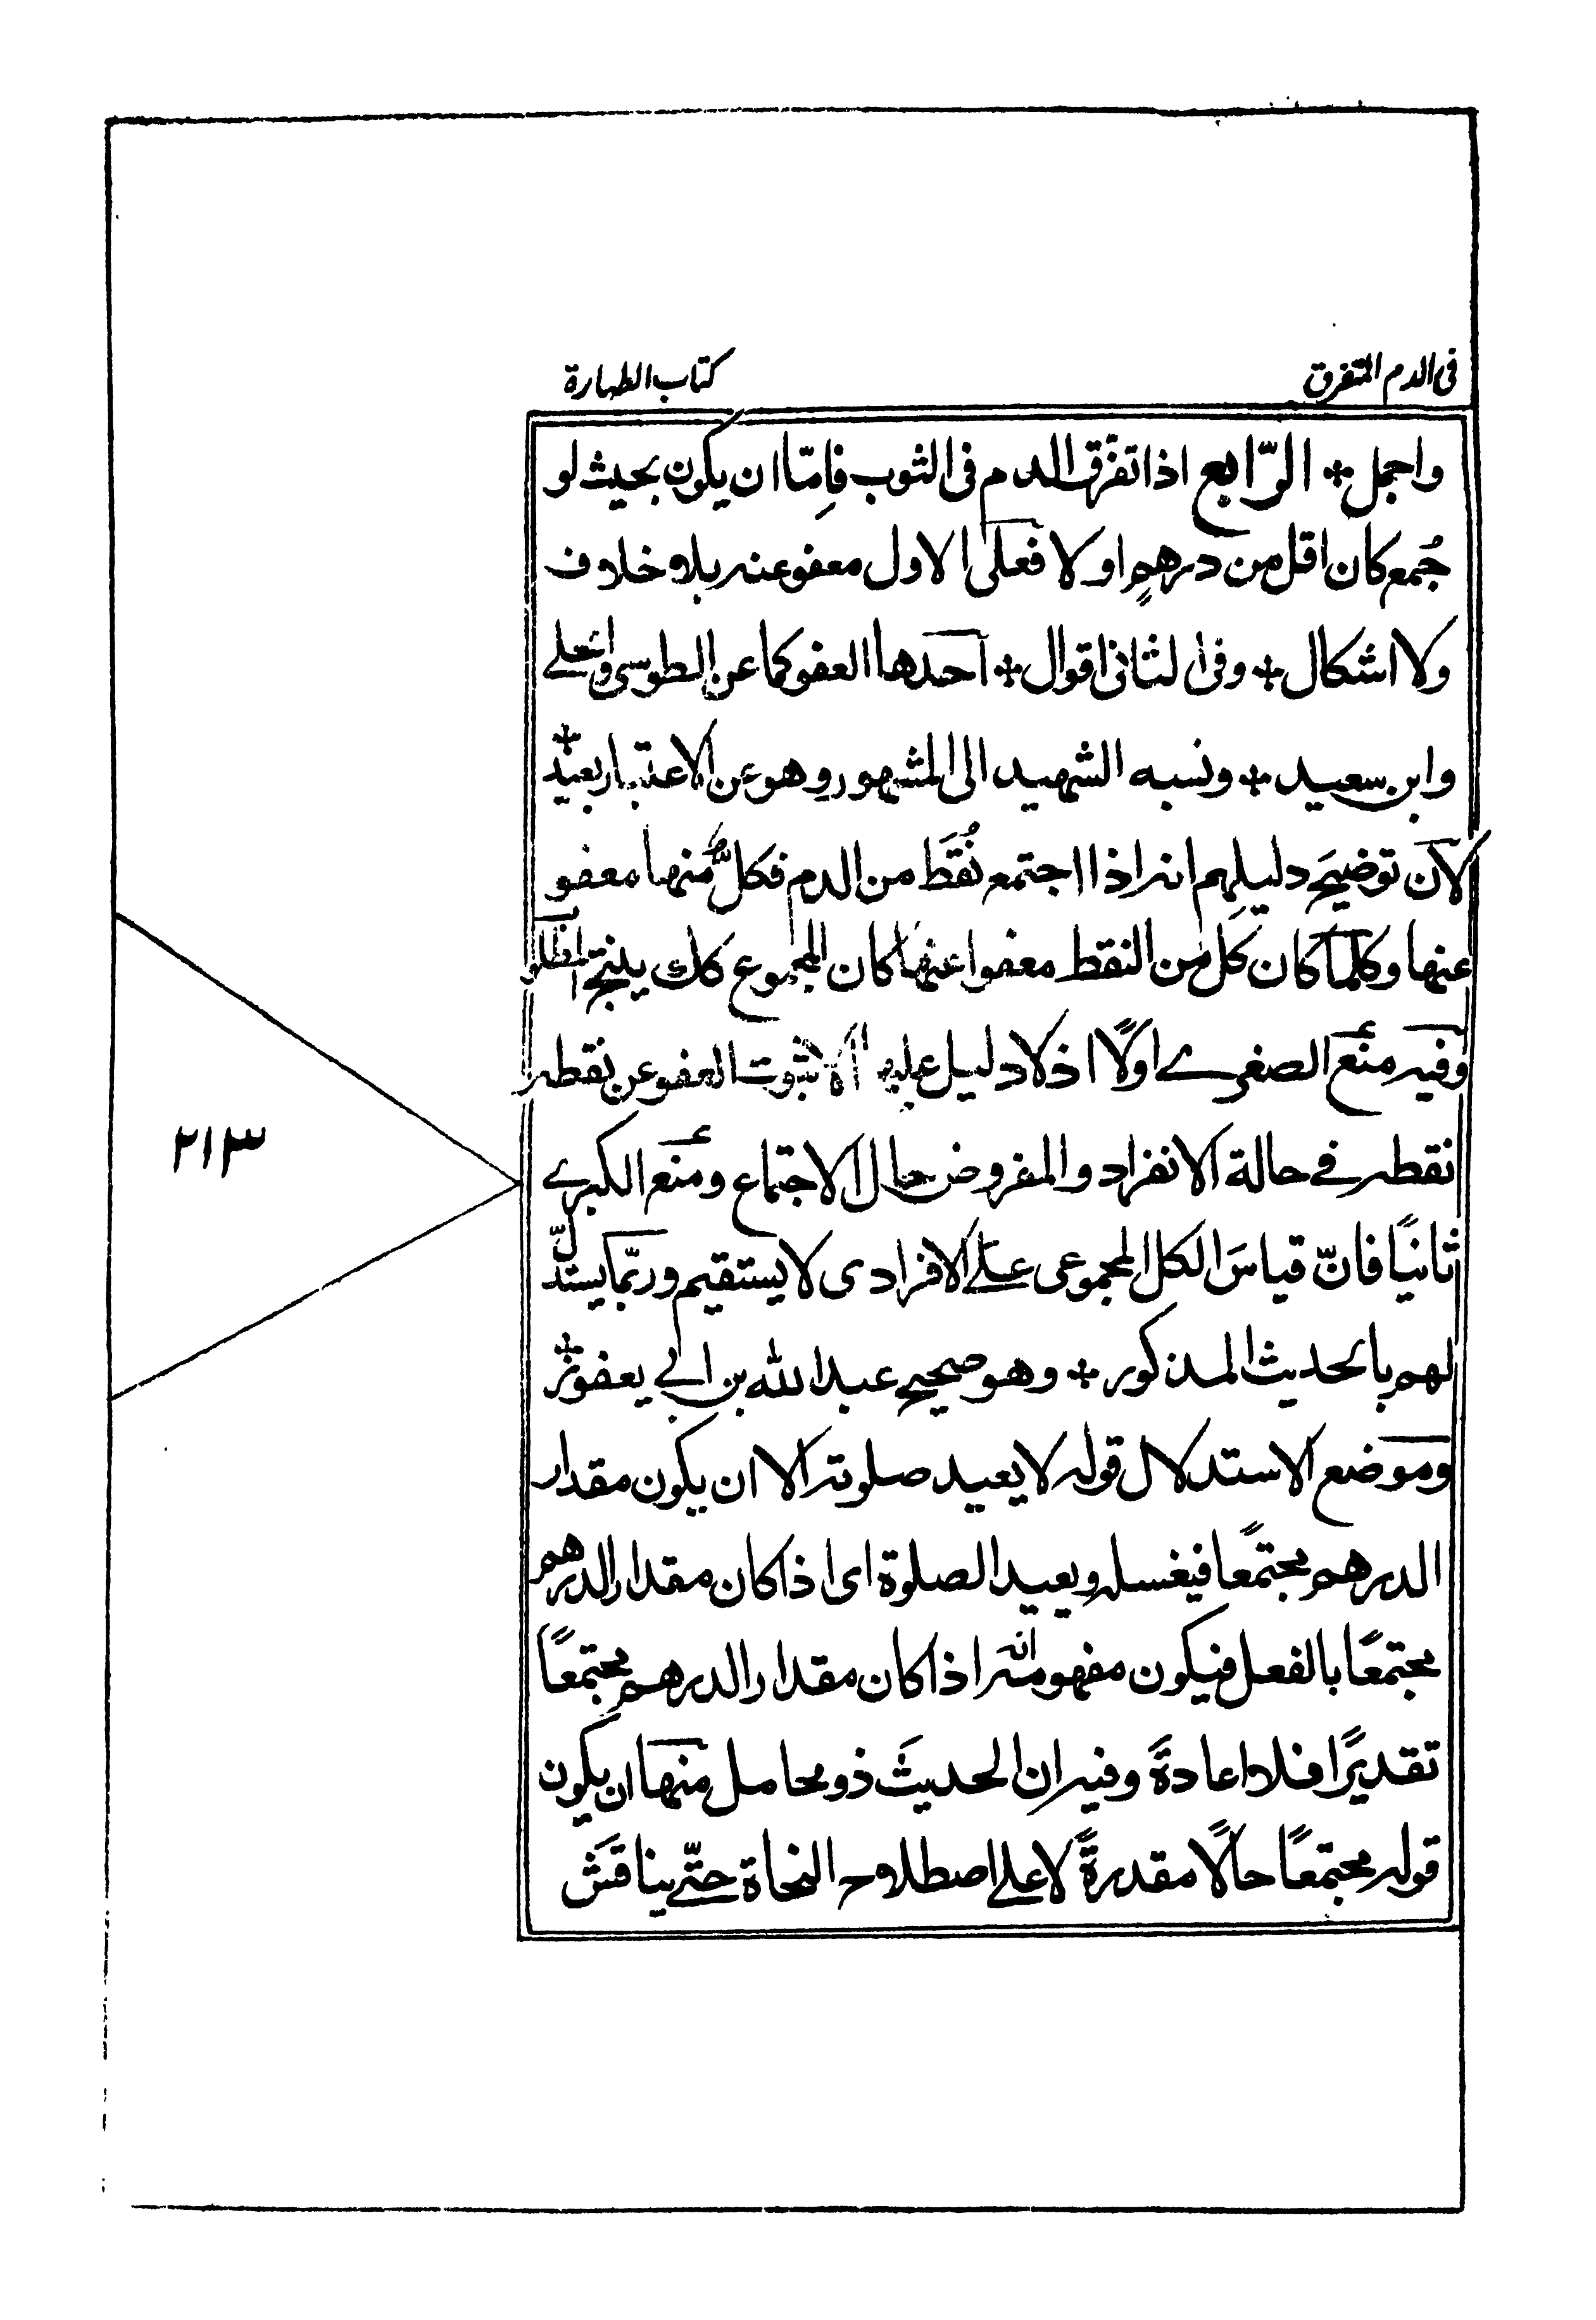 فى الدم المتفرق
كتاب الطهارة
واجمل * الرّابع اذا تفرّق الدم فى الثوب فاِمّا ان يكون بحيث لو
جُمع كان اقل من درهمٍ او لا فعلى الاول معفو عنه بلا خلاف
ولا اشكال * وفى الثانى اقوال * احدها العفو كما عن الطوسى والحلے
وابن سعيد * ونسبه الشهيد الى المشهور وهو عن الاعتبار بعيد *
لان توضيح دليلهم انه اذا اجتمع نُقَط من الدم فكلٌّ منها معفو
عنها وكلما كان كل من النقط معفوا عنها كان المجموع كك ينتج المطلو
وفيه منع الصغرے اولًا اذ لا دليل عليه الا ثبوت العفو عن نقطه
نقطه فے حالة الانفراد والمفروض حال الاجتماع ومنع الكبرے
ثانيًا فانّ قياسَ الكل المجموعى علے الافرادى لا يستقيم وربّما يستدلّ
لهم بالحديث المذكور * وهو صحيح عبد الله بن ابي يعفور *
وموضع الاستدلال قوله لا يعيد صلوته الا ان يكون مقدار
الدرهم مجتمعًا فيغسله ويعيد الصلوة اى اذا كان مقدار الدرهم
مجتمعًا بالفعل فيكون مفهومه انه اذا كان مقدار الدرهم مجتمعًا
تقديرًا فلا اعادةً وفيه ان الحديثَ ذو محامل منها ان يكون
قوله مجتمعًا حالًا مقدرةً لا علے اصطلاح النحاة حتّے يناقَش
٢١٣